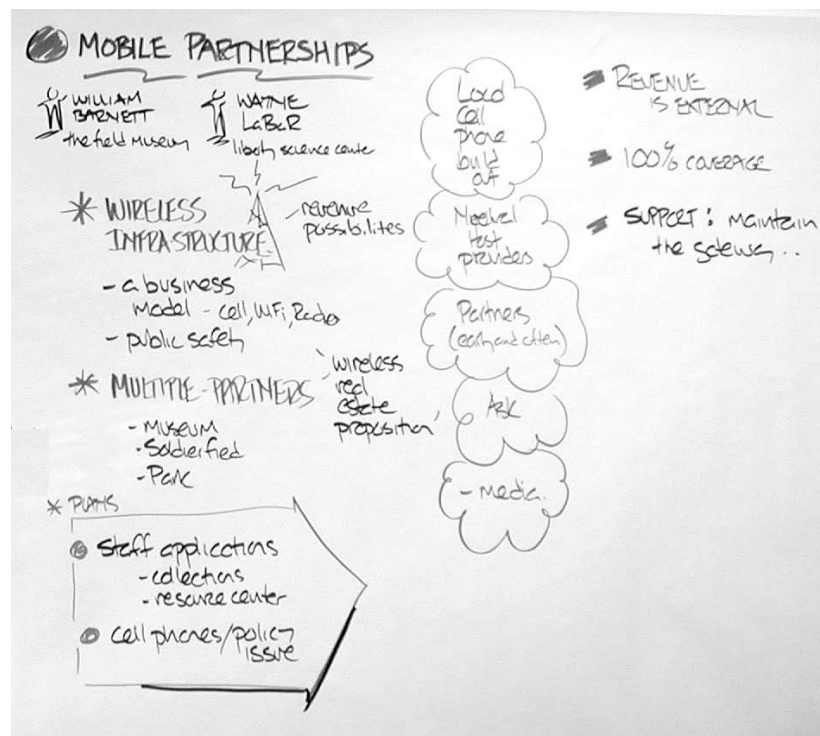 MOBILE PARTNERSHIPS
WILLIAM
BARNETT
the field Museum
WAYNE
LaBAR
liberty science center
* WIRELESS
INFRA-STRUCTURE
revenue
possibilites
- a business
model - cell, WiFi, Radio
- public safety
* MULTIPLE-PARTNERS
"wireless
real
estate
proposition"
- MUSEUM
- Soldierfied
- Park
* PLANS
staff applications
- collections
- resource center
cell phones/policy
issue
cell
phone
build
out
test
providers
Partners
(early and often)
ASK
- media.
REVENUE
IS EXTERNAL
100% COVERAGE
SUPPORT: maintain
the gateway..